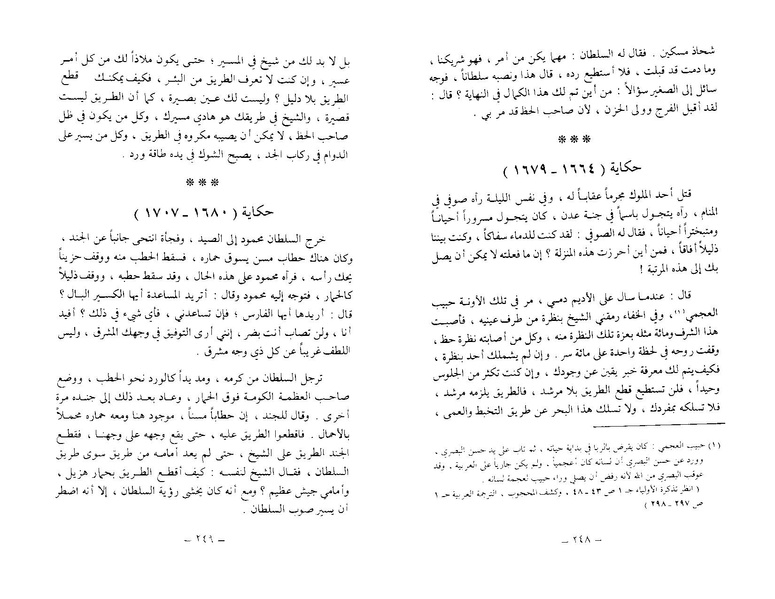 شحاذ مسكين . فقال له السلطان : مهما يكن من أمر ، فهو شريكنا ،
وما دمت قد قبلت ، فلا أستطيع رده ، قال هذا ونصبه سلطاناً ، فوجه
سائل إلى الصغير سؤالاً : من أين تم لك هذا الكمال في النهاية ؟ قال :
لقد أقبل الفرج وولى الحزن ، لأن صاحب الحظ قد مر بي .
* * *
حكاية ( ١٦٦٤ ـ ١٦٧٩ )
قتل أحد الملوك مجرماً عقاباً له ، وفي نفس الليلة رآه صوفي في
المنام ، رآه يتجول باسماً في جنة عدن ، كان يتجول مسروراً أحياناً
ومتبختراً أحياناً ، فقال له الصوفي : لقد كنت للدماء سفاكاً ، وكنت بيننا
ذليلاً أفاقاً ، فمن أين أحرزت هذه المنزلة ؟ إن ما فعلته لا يمكن أن يصل
بك إلى هذه المرتبة !
قال : عندما سال على الأديم دمي ، مر في تلك الأونة حبيب
العجمي (١) ، وفي الخفاء رمقني الشيخ بنظرة من طرف عينيه ، فأصبت
هذا الشرف ومائة مثله بعزة تلك النظرة منه ، وكل من أصابته نظرة حظ ،
وقفت روحه في لحظة واحدة على مائة سر . وإن لم يشملك أحد بنظرة ،
فكيف يتم لك معرفة خبر يقين عن وجودك ، وإن كنت تكثر من الجلوس
وحيداً ، فلن تستطيع قطع الطريق بلا مرشد ، فالطريق يلزمه مرشد ،
فلا تسلكه بمفردك ، ولا تسلك هذا البحر عن طريق التخبط والعمى ،
(١) حبيب العجمي : كان يقرض بالربا في بداية حياته ، ثم تاب على يد حسن البصري .
وورد عن حسن البصري أن لسانه كان أعجمياً . ولم يكن جارياً على العربية ، وقد
عوقب البصري من الله لأنه رفض أن يصلي وراء حبيب لعجمة لسانه .
( انظر تذكرة الأولياء جـ ١ ص ٤٣ ـ ٤٨ ، وكشف المحجوب ، الترجمة العربية جـ ١
ص ٢٩٧ ـ ٢٩٨ )
ـ ٢٤٨ ـ
بل لا بد لك من شيخ في المسير ؛ حتى يكون ملاذاً لك من كل أمر
عسير ، وإن كنت لا تعرف الطريق من البئر ، فكيف يمكنك قطع
الطريق بلا دليل ؟ وليست لك عين بصيرة ، كما أن الطريق ليست
قصيرة ، والشيخ في طريقك هو هادي مسيرك ، وكل من يكون في ظل
صاحب الحظ ، لا يمكن أن يصيبه مكروه في الطريق ، وكل من يسير على
الدوام في ركاب الجد ، يصبح الشوك في يده طاقة ورد .
* * *
حكاية ( ١٦٨٠ ـ ١٧٠٧ )
خرج السلطان محمود إلى الصيد ، وفجأة انتحى جانباً عن الجند ،
وكان هناك حطاب مسن يسوق حماره ، فسقط الحطب منه ووقف حزيناً
يحك رأسه ، فرآه محمود على هذه الحال ، وقد سقط حطبه ، ووقف ذليلاً
كالحمار ، فتوجه إليه محمود وقال : أتريد المساعدة أيها الكسير البال ؟
قال : أريدها أيها الفارس ؛ فإن تساعدني ، فأي شيء في ذلك ؟ أفيد
أنا ، ولن تصاب أنت بضر ، إنني أرى التوفيق في وجهك المشرق ، وليس
اللطف غريباً عن كل ذي وجه مشرق .
ترجل السلطان من كرمه ، ومد يداً كالورد نحو الحطب ، ووضع
صاحب العظمة الكومة فوق الحمار ، وعاد بعد ذلك إلى جنده مرة
أخرى . وقال للجند ، إن حطاباً مسناً ، موجود هنا ومعه حماره محملاً
بالأحمال . فاقطعوا الطريق عليه ، حتى يقع وجهه على وجهنا ، فقطع
الجند الطريق على الشيخ ، حتى لم يعد أمامه من طريق سوى طريق
السلطان ، فقال الشيخ لنفسه : كيف أقطع الطريق بحمار هزيل ،
وأمامي جيش عظيم ؟ ومع أنه كان يخشى رؤية السلطان ، إلا أنه اضطر
أن يسير صوب السلطان .
ـ ٢٤٩ ـ